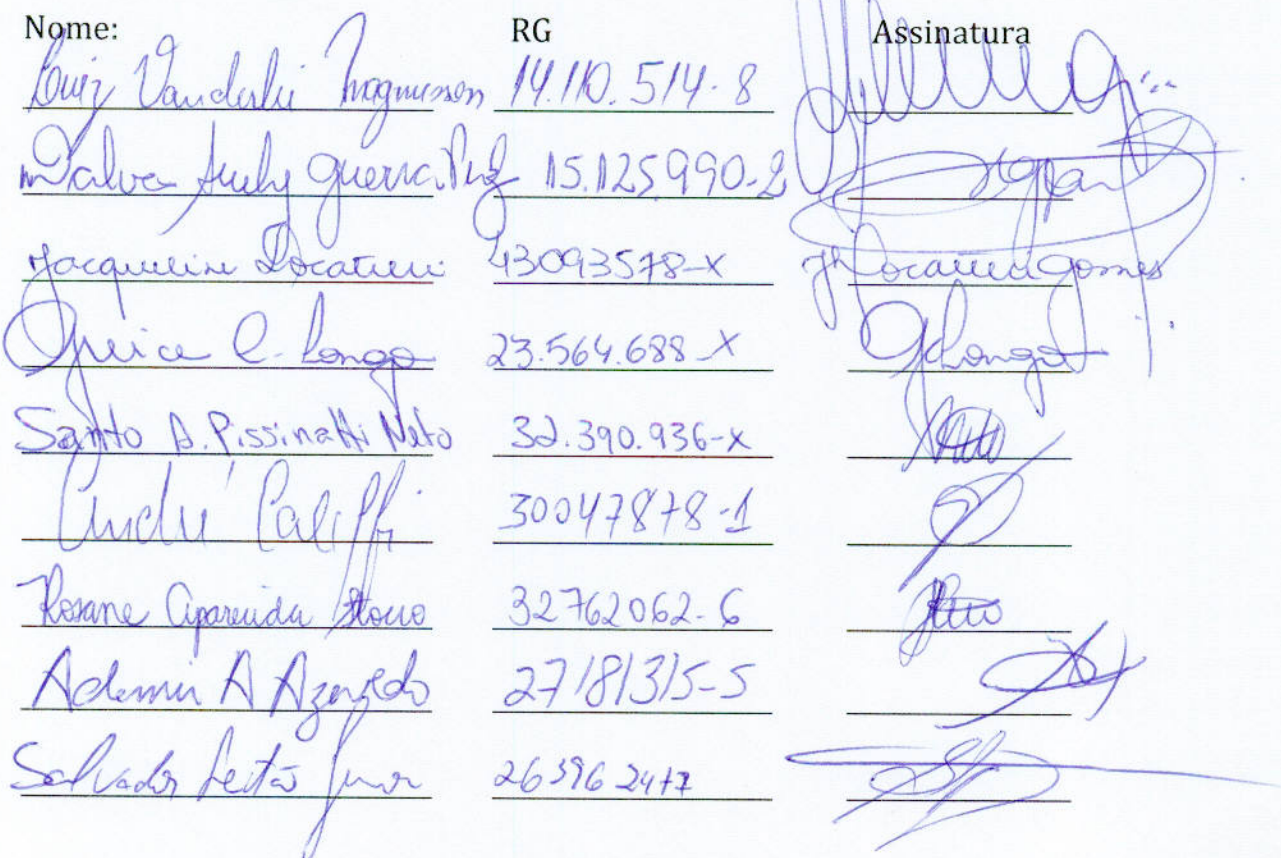 Nome: RG Assinatura
Luiz Vanderlei Magnusson 14.110.514-8
Dalva Suely Guerra 15.125.990-2
Jacqueline Locatelli 43093578-X JLocatelli Gomes
Greice C. Longo 23.564.688-X GCLongo
Santo A. Pissinatti Neto 32.390.936-x
André Califfi 30047878-1
Rosane Aparecida 32762062-6
Ademir A Azevedo 27181315-5
Salvador Leitão Junior 263962477